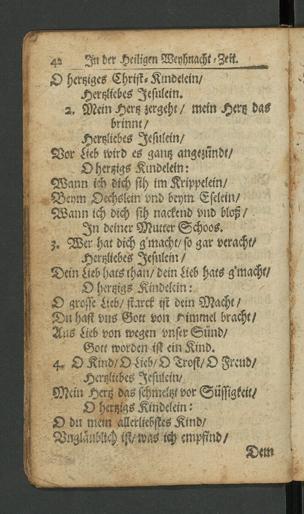 42 In der Heiligen Weyhnacht-Zeit.
O hertziges Christ-Kindelein/
Hertzliebes Jesulein.
2. Mein Hertz zergeht/ mein Hertz das
brinnt/
Hertzliebes Jesulein/
Vor Lieb wird es gantz angezündt/
O hertzigs Kindelein:
Wann ich dich sih im Krippelein/
Beym Oechslein vnd beym Eselein/
Wann ich dich sih nackend vnd bloß/
In deiner Mutter Schoos.
3. Wer hat dich g'macht/ so gar veracht/
Hertzliebes Jesulein/
Dein Lieb hats than/ dein Lieb hats g'macht/
O hertzigs Kindelein:
O grosse Lieb/ starck ist dein Macht/
Du hast vns Gott von Himmel bracht/
Aus Lieb von wegen vnser Sünd/
Gott worden ist ein Kind.
4. O Kind/ O Lieb/ O Trost/ O Freud/
Hertzliebes Jesulein/
Mein Hertz das schmeltzt vor Süssigkeit/
O hertzigs Kindelein:
O du mein allerliebstes Kind/
Vnglaublich ist/ was ich empfind/
Dem